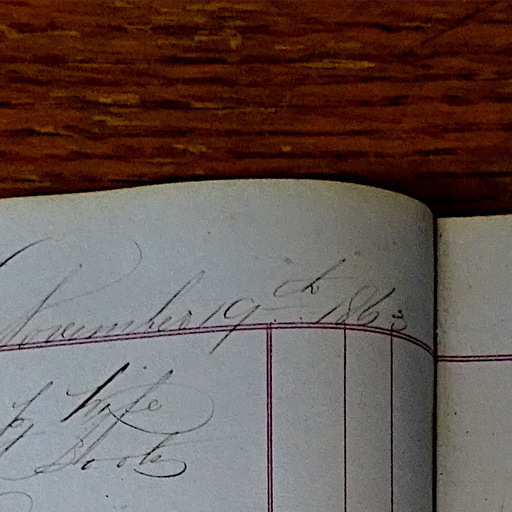 November 19th 1863
by Wife
Book